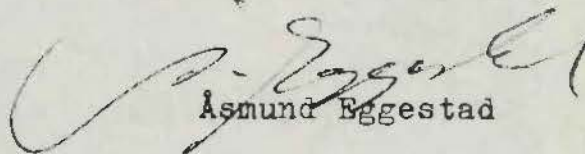 Åsmund Eggestad